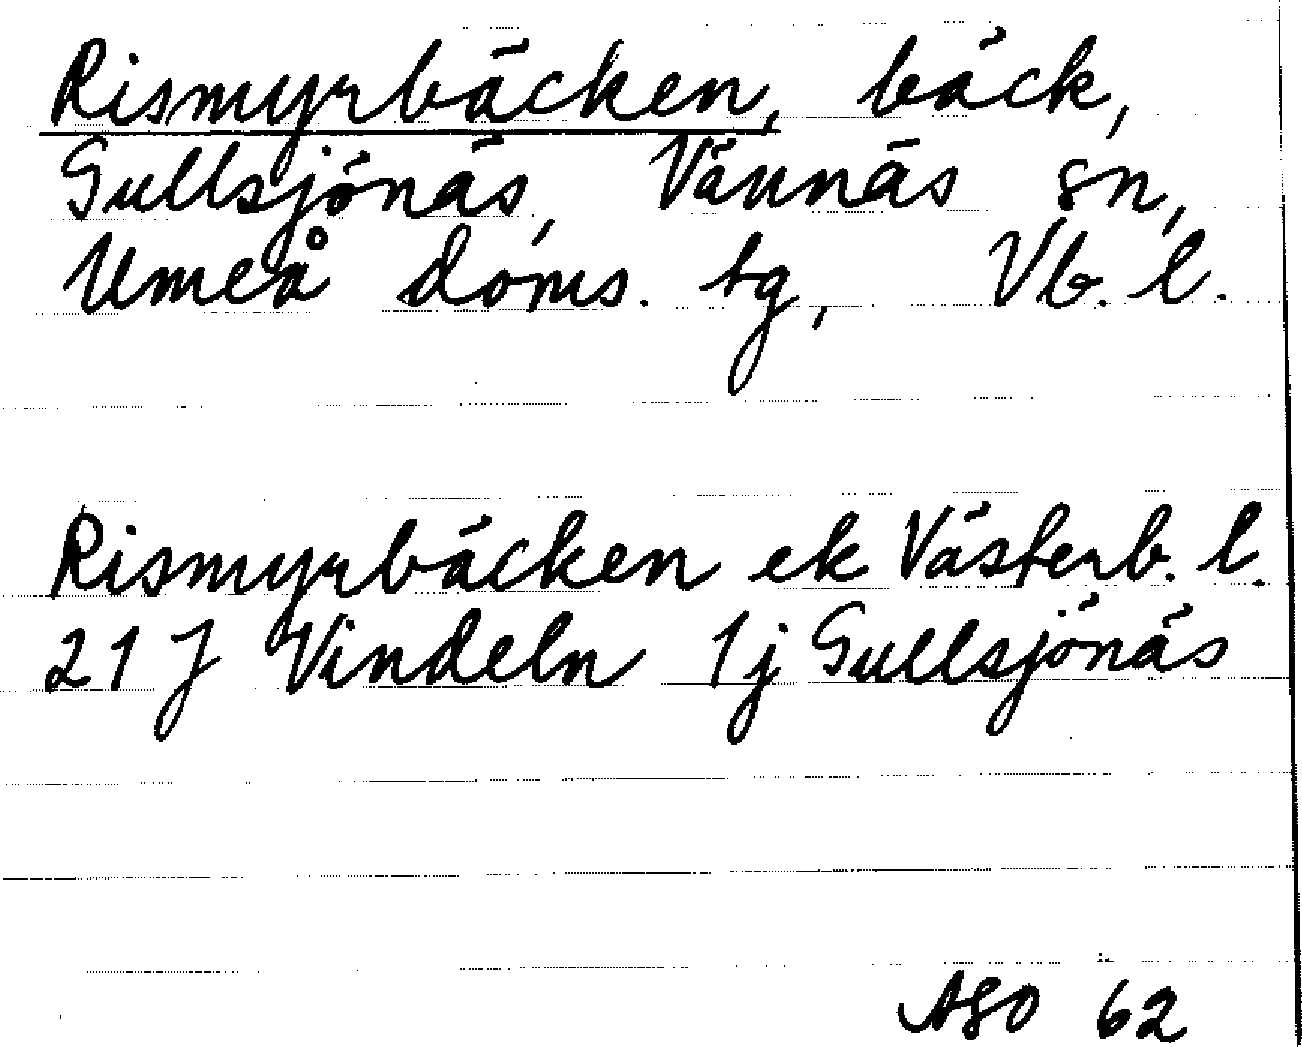 Rismyrbäcken, bäck,
Gullsjönäs, Vännäs sn,
Umeå doms. tg, Vb. l.
Rismyrbäcken ek Västerb. l.
21 J Vindeln 1j Gullsjönäs
ASO 62